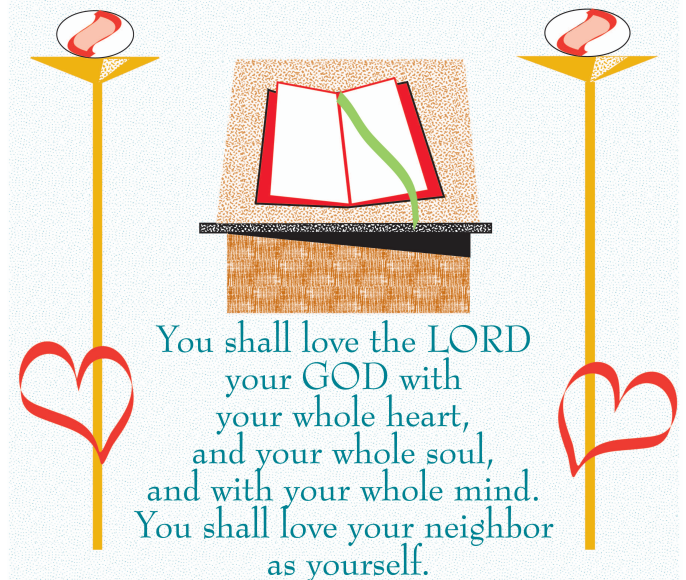 You shall love the LORD
your GOD with
your whole heart,
and your whole soul,
and with your whole mind.
You shall love your neighbor
as yourself.